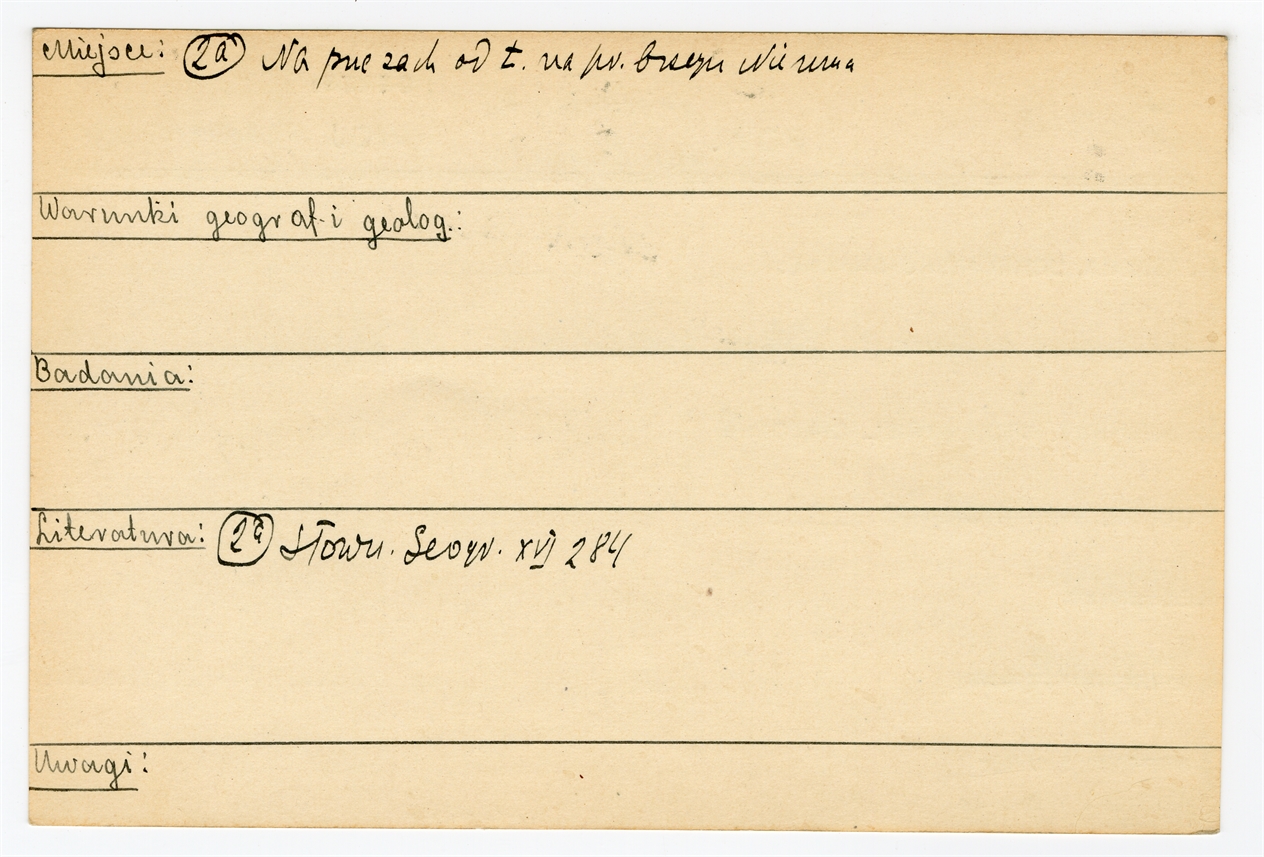 Miejsce: 2a Na pnc zach od t. na pr. brzegu Niemna
Warunki geograf. i geolog.:
Badania:
Literatura: 2a Słown. Geogr. XVI 284
Uwagi: